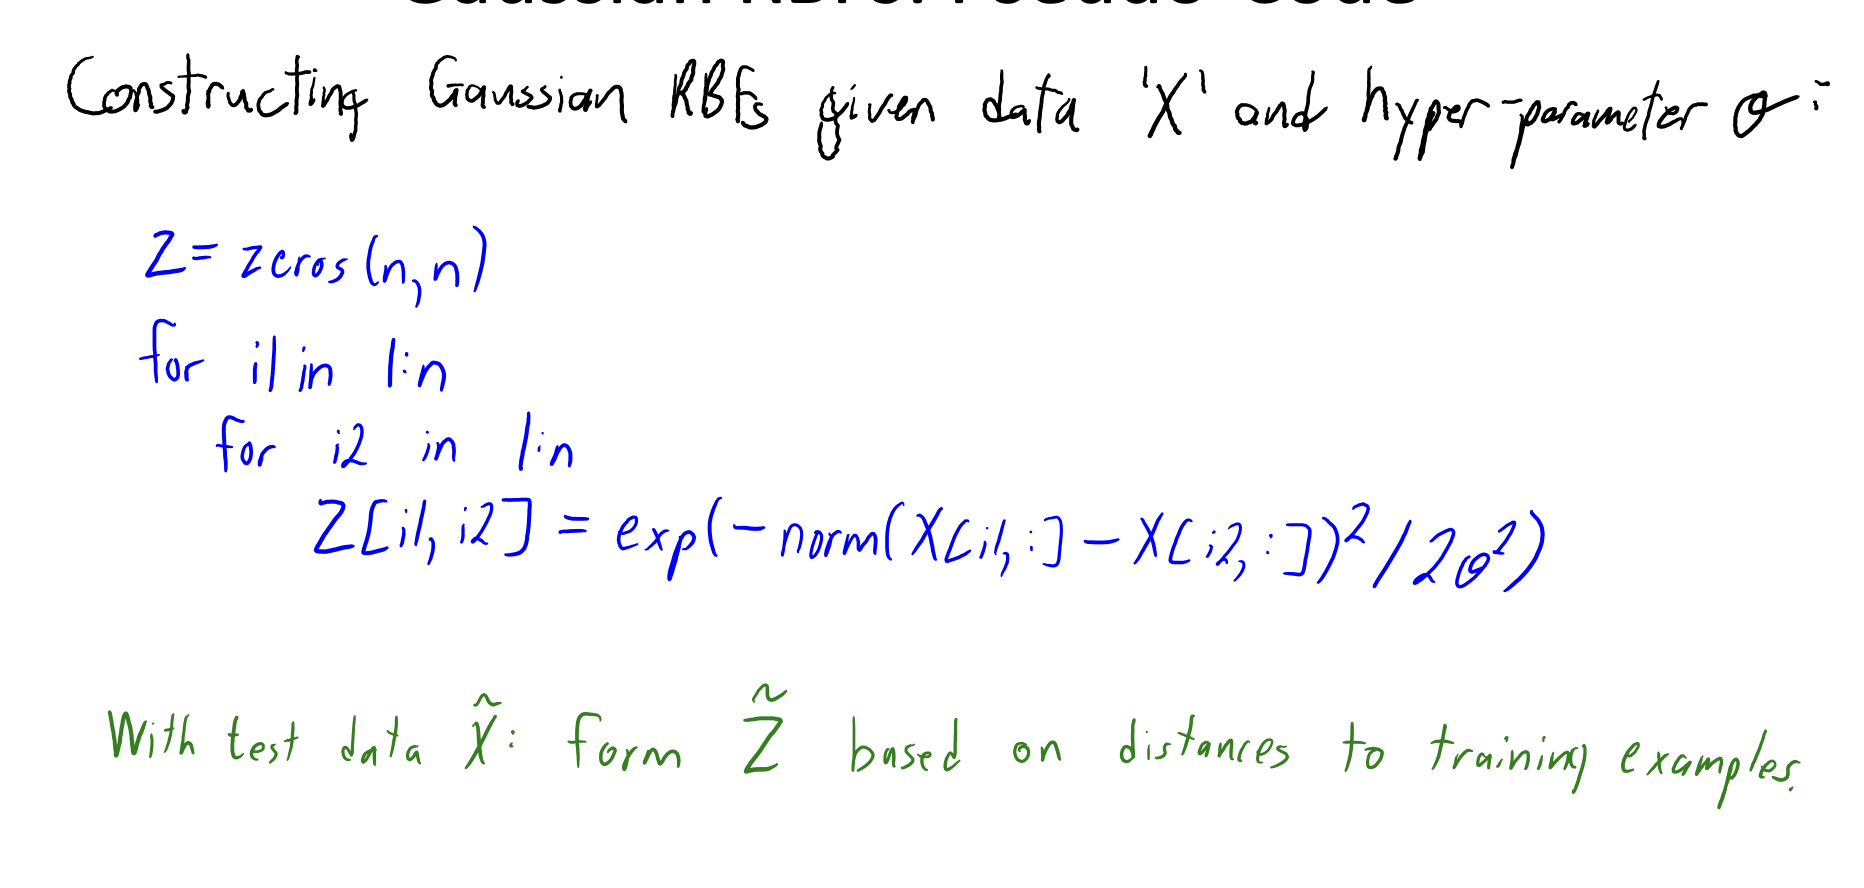 Constructing Gaussian RBFs given data 'X' and hyper-parameter σ:
Z = zeros(n,n)
for i1 in 1:n
for i2 in 1:n
Z[i1, i2] = exp(-norm(X[i1,:] - X[i2,:])^2/2σ^2)
With test data X̃: form Z̃ based on distances to training examples.